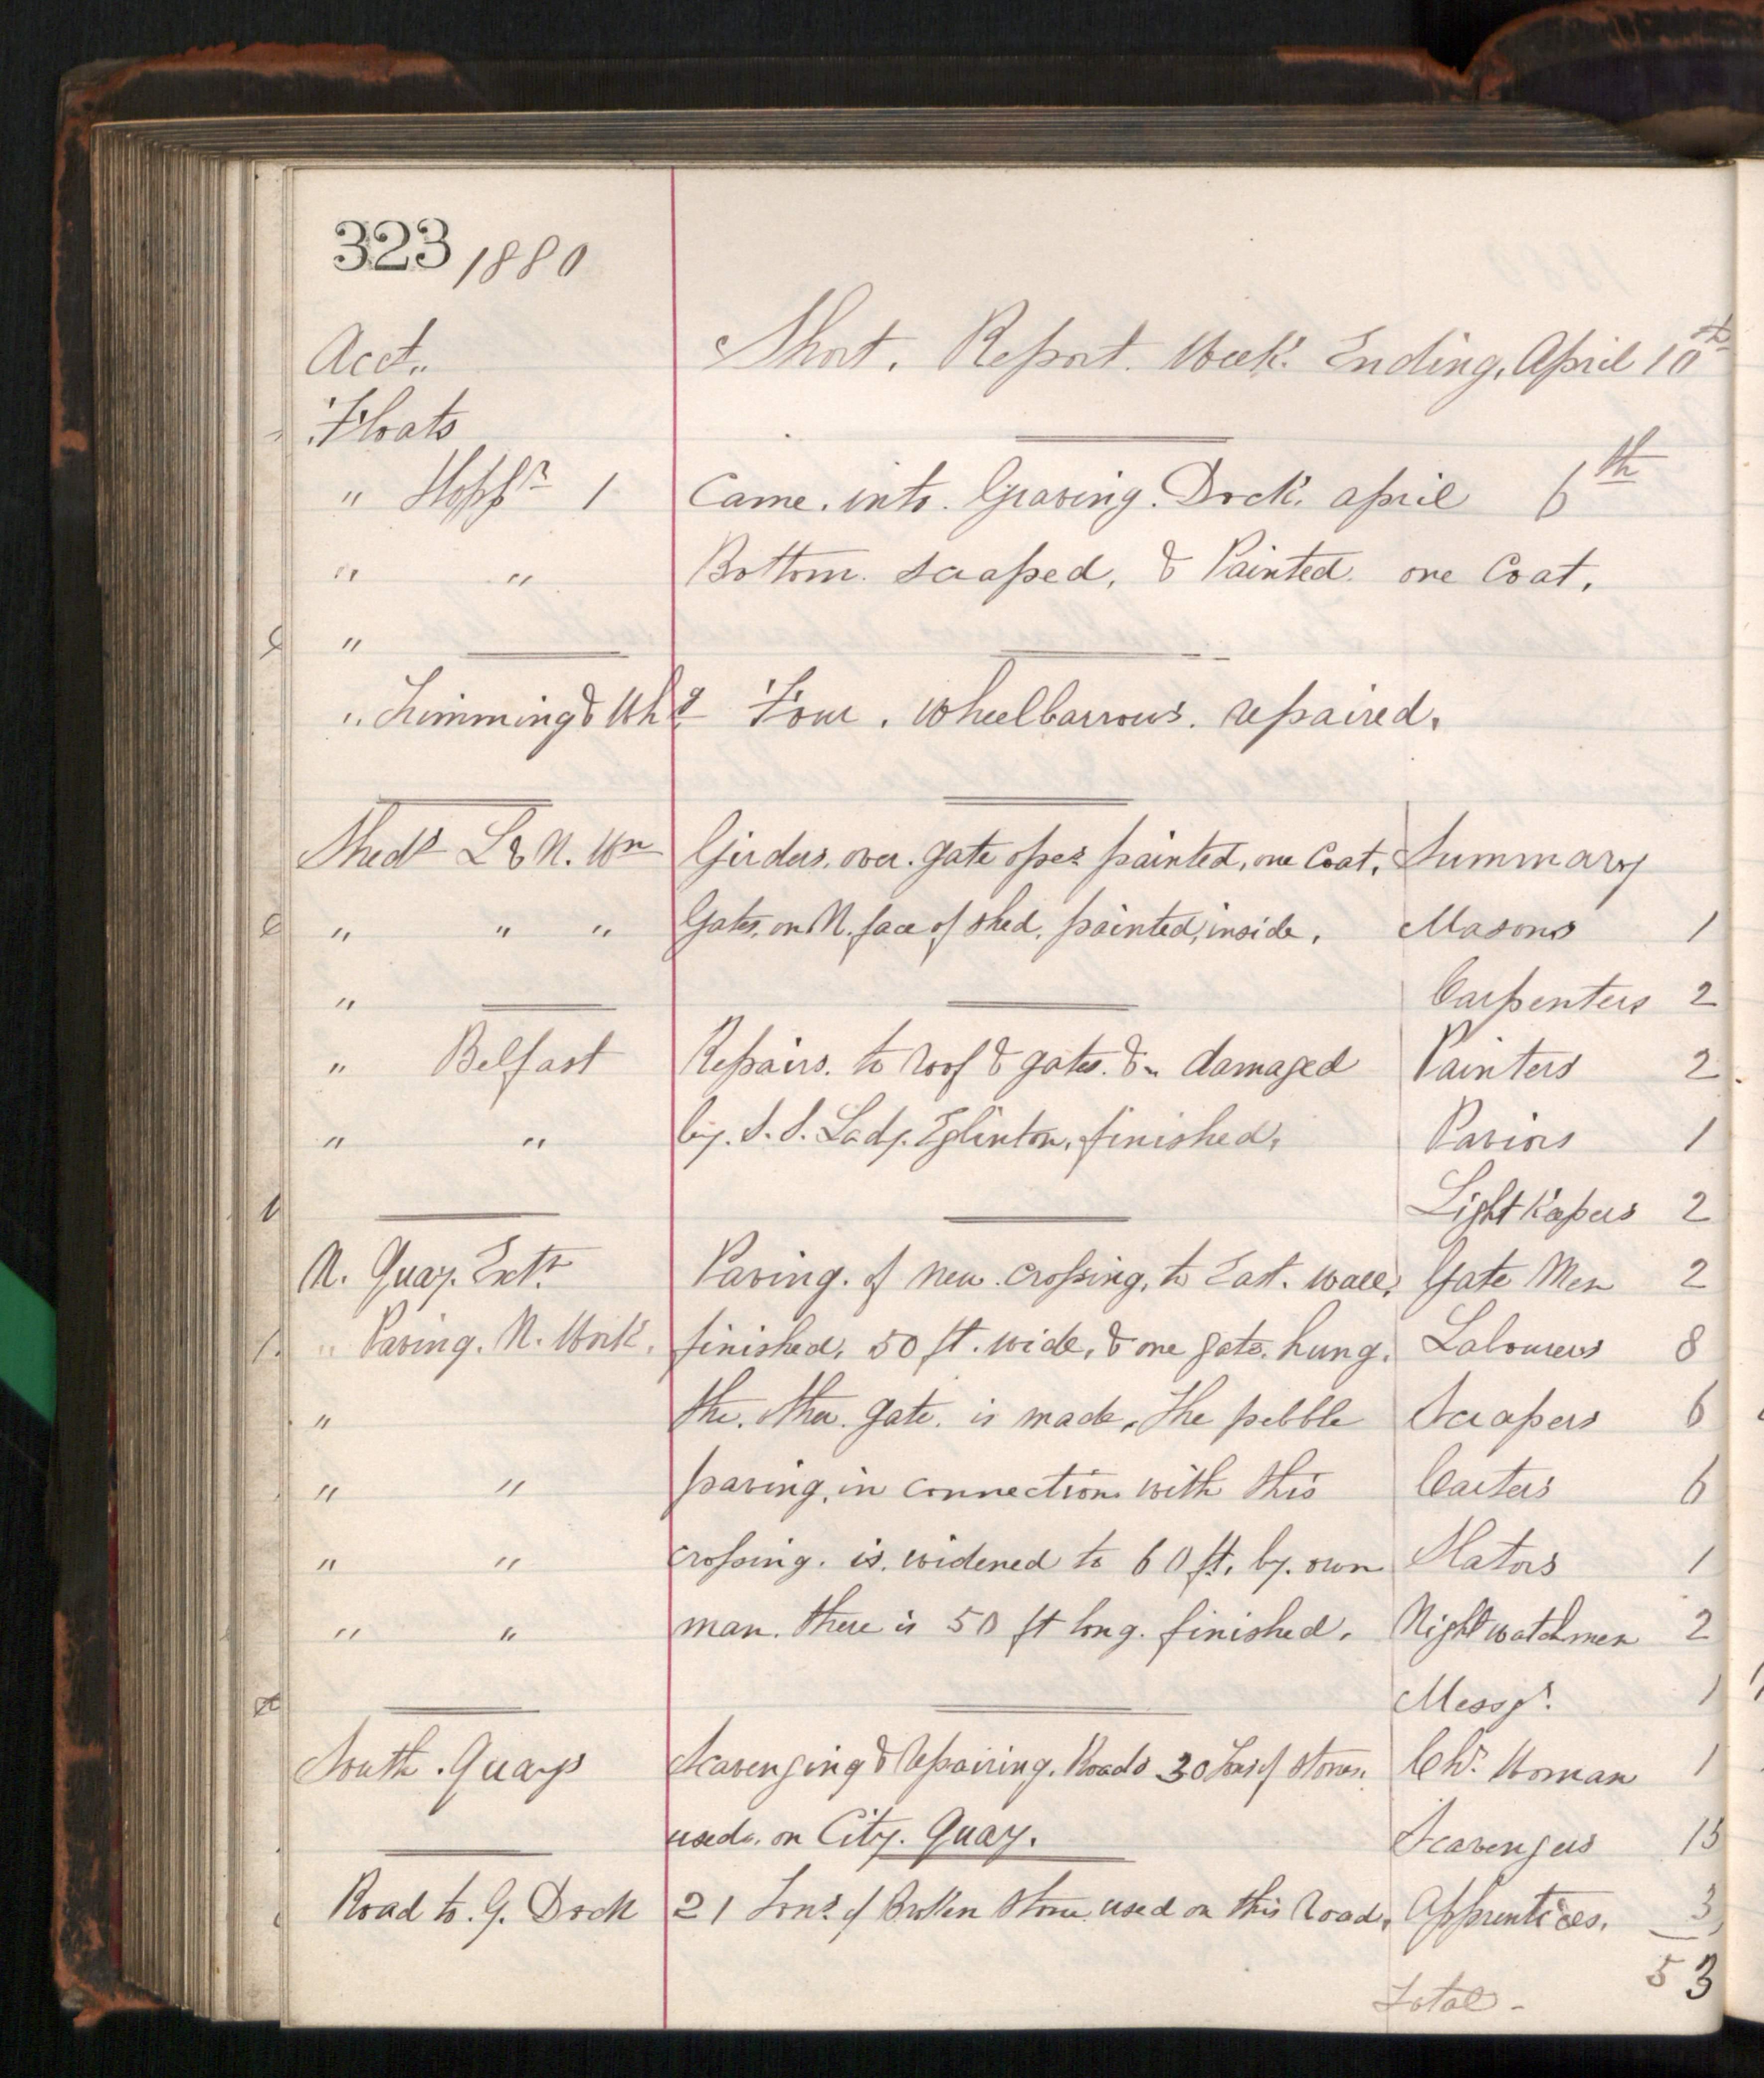 323 1880
Acct. Short. Report. Week. Ending, April 10th
Floats
" Hoppr 1 Came. into. Graving. Dock. april 6th
" " Bottom. scraped, & Painted. one Coat.
"
" Trimming & Whg Four. wheelbarrows. repaired.
Sheds L & N. Wn Girders. over. gate opes painted, one Coat. Summary
" " " Gates. on N. face of shed. painted, inside. Masons 1
" Carpenters 2
" Belfast Repairs. to roof & gates. &c damaged Painters 2
" " by. S. S. Lady. Eglinton. finished. Paviors 1
Light Keepers 2
N. Quay. Extn Paving. of new. crossing, to East. wall, Gate Men 2
" Paving. N. Work. finished, 50 ft. wide, & one gate. hung. Labourers 8
" the. other. gate. is made. The pebble Scrapers 6
" " paving, in connection with this Carters 6
" " crossing. is. widened to 60 ft. by. own Slators 1
" " man. there is 50 ft long. finished. Night watchmen 2
Messgr. 1
South. Quays Scavenging & Repairing. Roads 30 Tons of stones. Chr. Woman 1
used. on City. Quay. Scavengers 15
Road to. G. Dock 21 Tons of Broken Stone used on this Road. Apprentices. 3
Total - 53